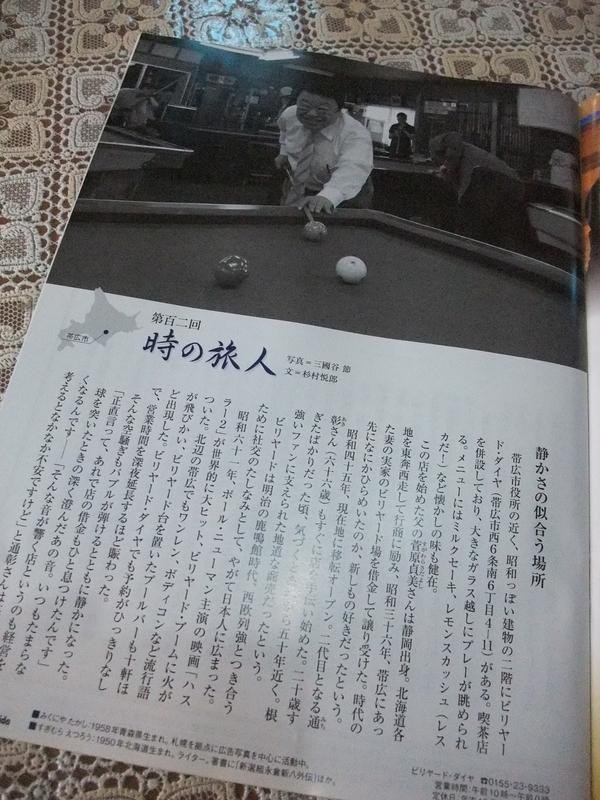 帯広市
第百二回
時の旅人
写真=三國谷 節
文=杉村悦郎
静かさの似合う場所
帯広市役所の近く、昭和っぽい建物の二階にビリヤー
ド・ダイヤ(帯広市西6条南6丁目4−11)がある。喫茶店
を併設しており、大きなガラス越しにプレーが眺められ
る。メニューにはミルクセーキ、レモンスカッシュ(レス
カだ!)など懐かしの味も健在。
この店を始めた父の菅原貞美さんは静岡出身。北海道各
地を東奔西走して行商に励み、昭和三十六年、帯広にあっ
た妻の実家のビリヤード場を借金して譲り受けた。時代の
先になにかひらめいたのか、新しもの好きだったという。
昭和四十五年、現在地に移転オープン。二代目となる通
彰さん(六十六歳)もすぐに店を手伝い始めた。二十歳す
ぎたばかりだった頃、気づく 五十年近く。根
強いファンに支えられた地道な商売だったという。
ビリヤードは明治の鹿鳴館時代、西欧列強とつき合う
ために社交のたしなみとして、やがて日本人に広まった。
昭和六十一年、ポール・ニューマン主演の映画「ハス
ラー2」が世界的に大ヒット、ビリヤード・ブームに火が
ついた。北辺の帯広でもワンレン、ボディコンなど流行語
が飛びかい、ビリヤード台を置いたプールバーも十軒ほ
ど出現した。ビリヤード・ダイヤでも予約がひっきりなし
で、営業時間を深夜延長するほど賑わった。
そんな空騒ぎもバブルが弾けるとともに静かになった。
「正直言って、あれで店の借金もひと息つけたんです」
球を突いたときの深く澄んだあの音。いつもたまらな
くなるんです――「そんな音が響く店というのも経営を
考えるとなかなか不安ですけど」と通彰さんは
■みくにや たかし:1958年青森県生まれ。札幌を拠点に広告写真を中心に活動中。
■すぎむら えつろう:1950年北海道生まれ。ライター。著書に『新選組永倉新八外伝』ほか。
ビリヤード・ダイヤ ☎0155-23-9333
営業時間:午前10時〜午前
定休日: